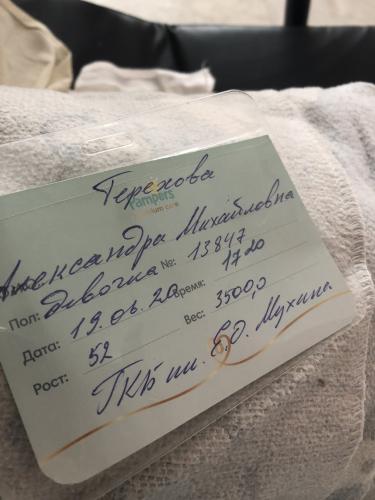 Терехова
Pampers
premium care
Александра Михайловна
Пол: девочка №: 13847
Дата: 19.06.20 Время: 1720
Рост: 52 Вес: 3500,0
ГКБ им. Е.О. Мухина.